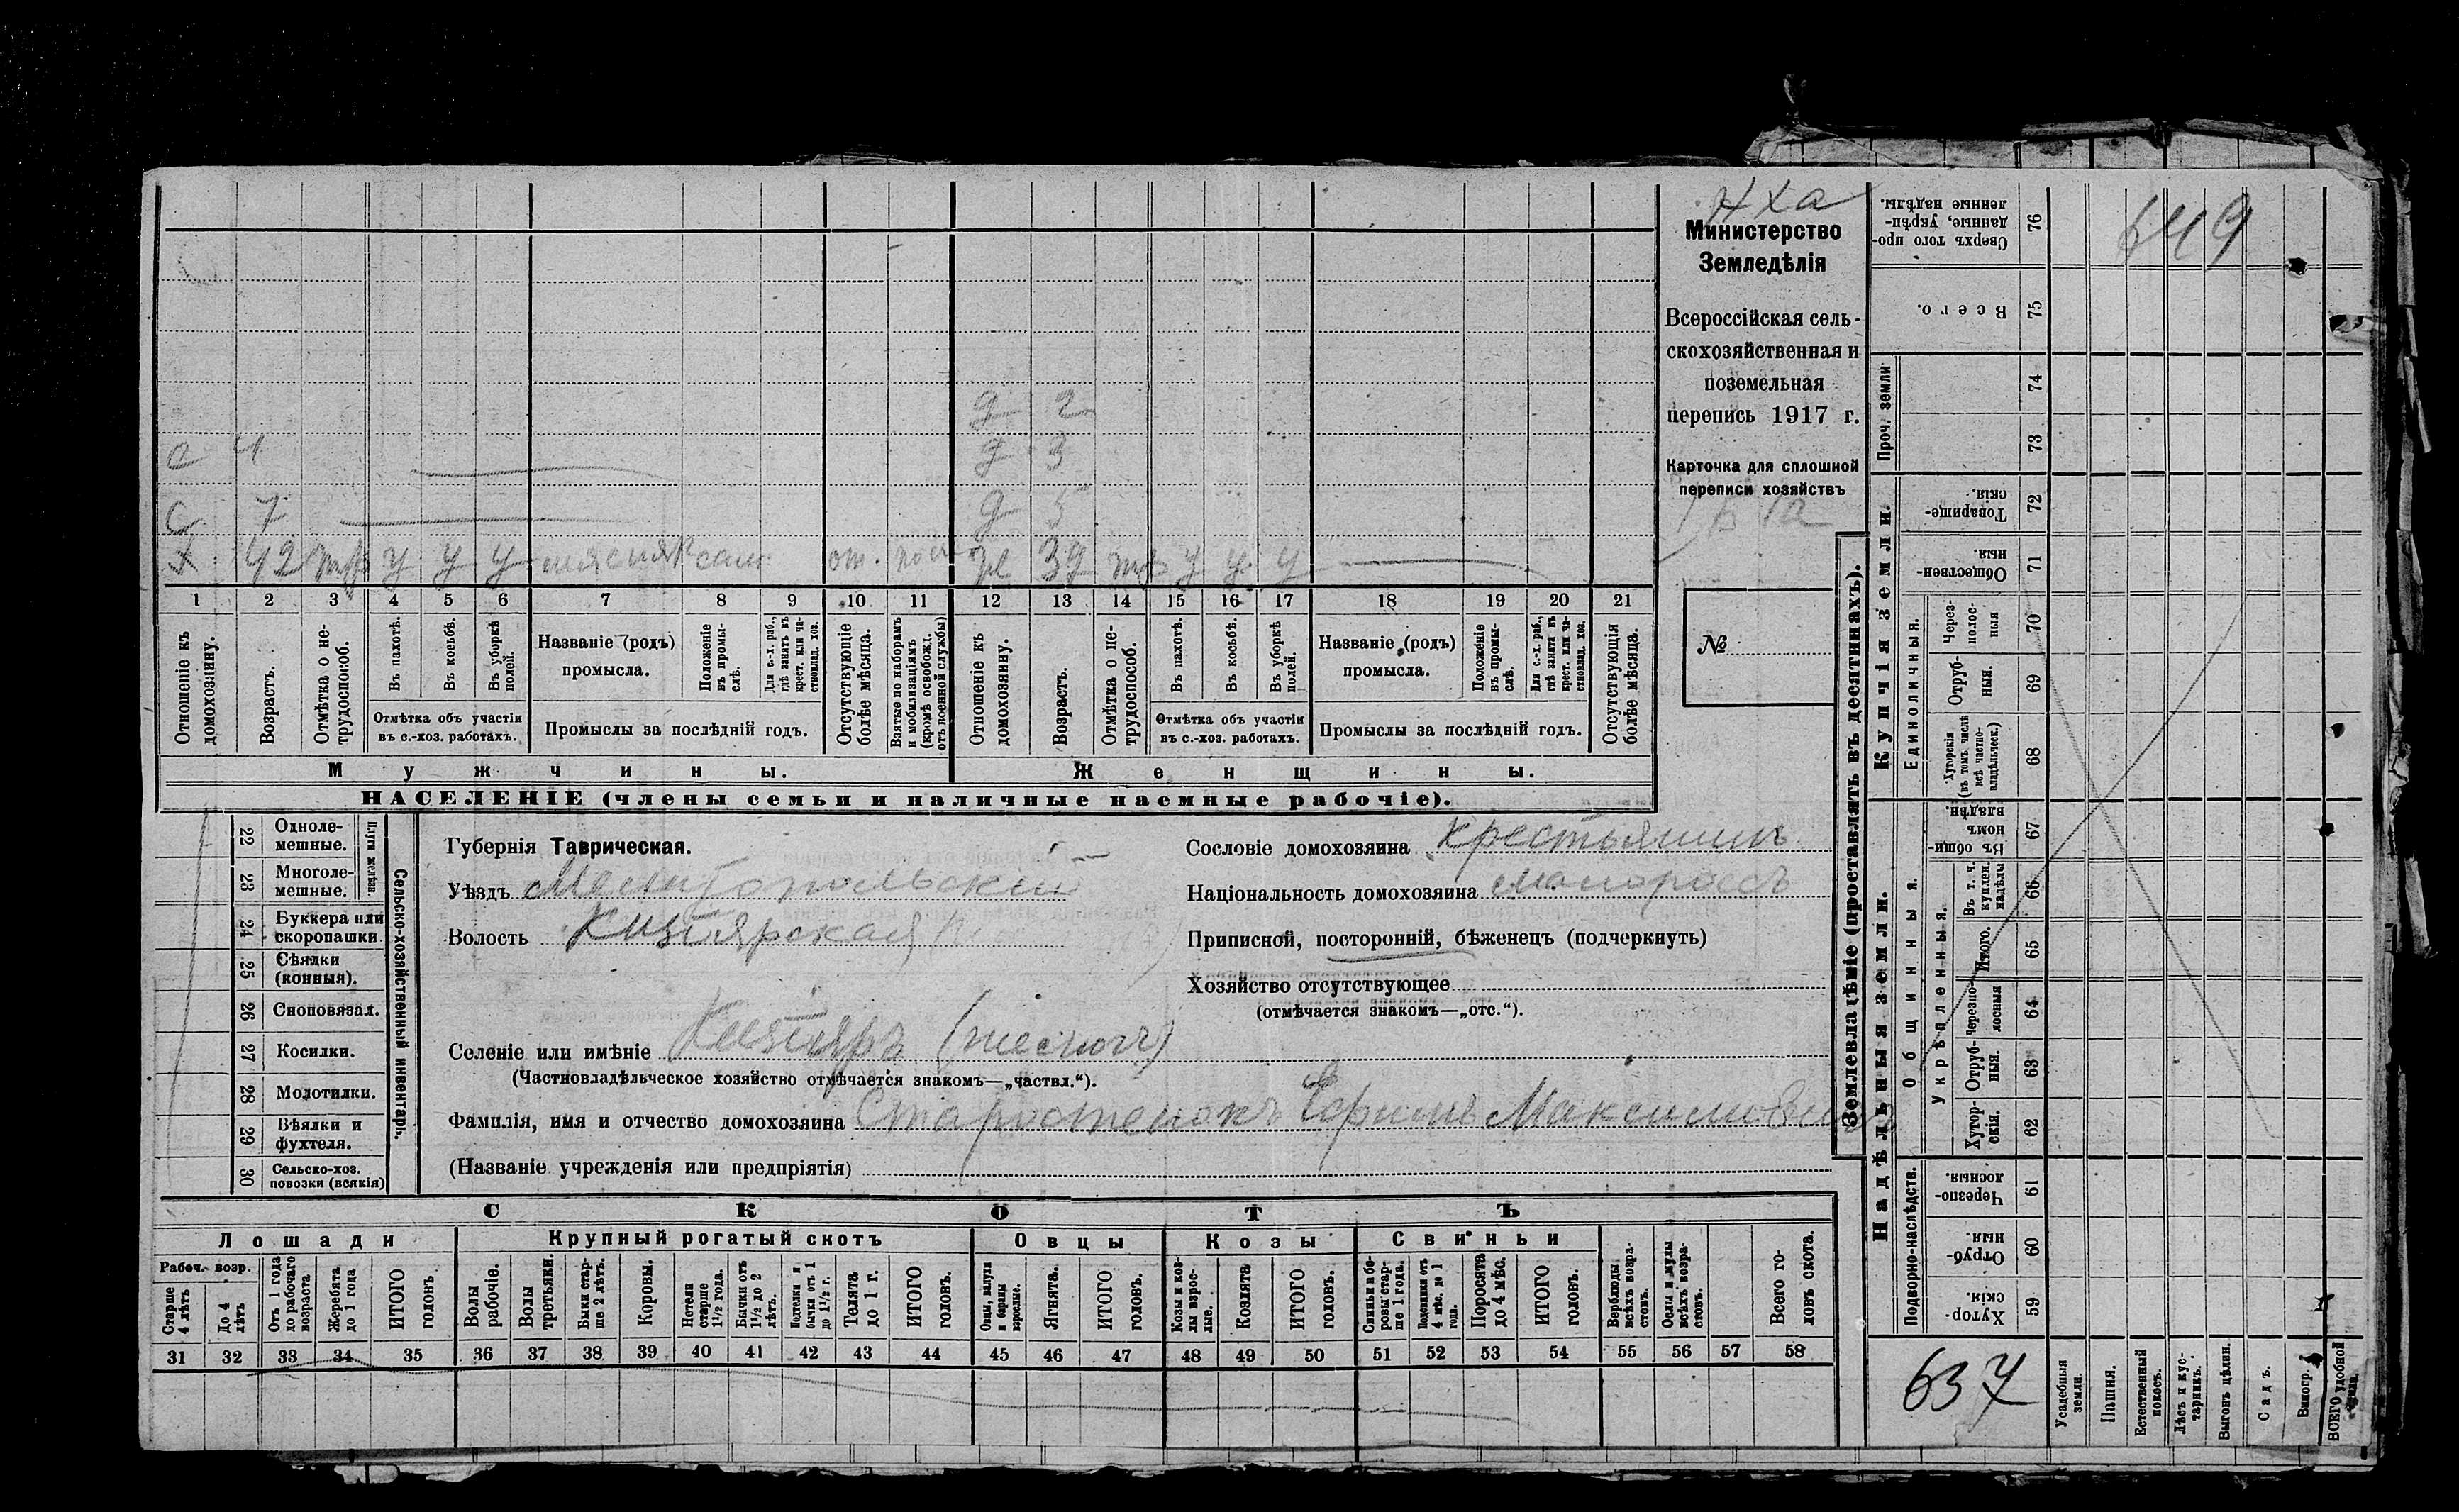 Нха
Министерство
Земледѣлія
Всероссійская сель-
скохозяйственная и
поземельная
перепись 1917 г.
Карточка для сплошной
переписи хозяйствъ
№
д 2
с 4 д 3
с 7 д 5
х 42 тр у у у сам. от. 39 тр у у у
1 2 3 4 5 6 7 8 9 10 11 12 13 14 15 16 17 18 19 20 21
Отношеніе къ домохозяину.
Возрастъ.
Отмѣтка о не-трудоспособ.
Въ пахотѣ.
Въ косьбѣ.
Въ уборкѣ полей.
Отмѣтка объ участіи
въ с.-хоз. работахъ.
Названіе (родъ)
промысла.
Положеніе въ промы-слѣ.
Для с.-х. раб., гдѣ занятъ въ крест. или ча-стновлад. хоз.
Промыслы за послѣдній годъ.
Отсутствующіе болѣе мѣсяца.
Взятые по наборамъ и мобилизаціямъ (кромѣ освобожд. отъ военной службы)
Отношеніе къ домохозяину.
Возрастъ.
Отмѣтка о не-трудоспособ.
Въ пахотѣ.
Въ косьбѣ.
Въ уборкѣ полей.
Отмѣтка объ участіи
въ с.-хоз. работахъ.
Названіе (родъ)
промысла.
Положеніе въ промы-слѣ.
Для с.-х. раб., гдѣ занята въ крест. или ча-стновлад. хоз.
Промыслы за послѣдній годъ.
Отсутствующія болѣе мѣсяца.
Мужчины. Женщины.
НАСЕЛЕНІЕ (члены семьи и наличные наемные рабочіе).
22 Одноле-мешные.
23 Многоле-мешные.
Плуги желѣзн.
24 Буккера или скоропашки
25 Сѣялки (конныя).
26 Сноповязал.
27 Косилки.
28 Молотилки.
29 Вѣялки и фухтеля.
30 Сельско-хоз. повозки (всякія)
Сельско-хозяйственный инвентарь.
Губернія Таврическая.
Уѣздъ Мелитопольскій
Волость Кизіярская
Селеніе или имѣніе Кизіяръ
(Частновладѣльческое хозяйство отмѣчается знакомъ—„частвл.“).
Фамилія, имя и отчество домохозяина Старостенокъ Ефимъ Максимович
(Названіе учрежденія или предпріятія)
Сословіе домохозяина крестьянинъ
Національность домохозяина малороссъ
Приписной, посторонній, бѣженецъ (подчеркнуть)
Хозяйство отсутствующее
(отмѣчается знакомъ—„отс.“).
СКОТЪ
Лошади Крупный рогатый скотъ Овцы Козы Свиньи
Рабоч. возр.
Старше 4 лѣтъ
До 4 лѣтъ
Отъ 1 года до рабочаго возраста
Жеребята до 1 года
ИТОГО головъ
Волы рабочіе.
Волы третьяки.
Быки стар-ше 2 лѣтъ.
Коровы.
Нетели старше 1½ года.
Бычки отъ 1½ до 2 лѣтъ.
Подтелки и бычки отъ 1 до 1½ г.
Телята до 1 г.
ИТОГО головъ.
Овцы, валухи и бараны взрослые.
Ягнята.
ИТОГО головъ.
Козы и коз-лы взрос-лые.
Козлята
ИТОГО головъ.
Свиньи и бо-ровы стар-ше 1 года.
Подсвинки отъ 4 мѣс. до 1 года.
Поросята до 4 мѣс.
ИТОГО головъ.
Верблюды всѣхъ возра-стовъ.
Ослы и мулы всѣхъ возра-стовъ.
Всего го-ловъ скота.
31 32 33 34 35 36 37 38 39 40 41 42 43 44 45 46 47 48 49 50 51 52 53 54 55 56 57 58
Землевладѣніе (проставлять въ десятинахъ).
649
Сверхъ того про-данные, укрѣп-ленные надѣлы. 76
Всего. 75
Проч. земли 74
73
Купчія земли.
Товарище-скія. 72
Обществен-ныя. 71
Единоличныя.
Через-полос-ныя 70
Отруб-ныя. 69
Хуторскія (въ томъ числѣ всѣ частно-владѣльческ.) 68
Надѣльныя земли.
Общинныя.
Въ общин-номъ владѣн. 67
Укрѣпленныя.
Въ т. ч. куплен. надѣлы 66
Итого. 65
Черезпо-лосныя 64
Отруб-ныя. 63
Хутор-скія. 62
Подворно-наслѣдств.
Черезпо-лосныя 61
Отруб-ныя. 60
Хутор-скія. 59
637
Усадебныя земли.
Пашня.
Естественный покосъ.
Лѣсъ и кус-тарникъ.
Выгонъ цѣлин.
Садъ.
Виногр.
ВСЕГО удобной земли.